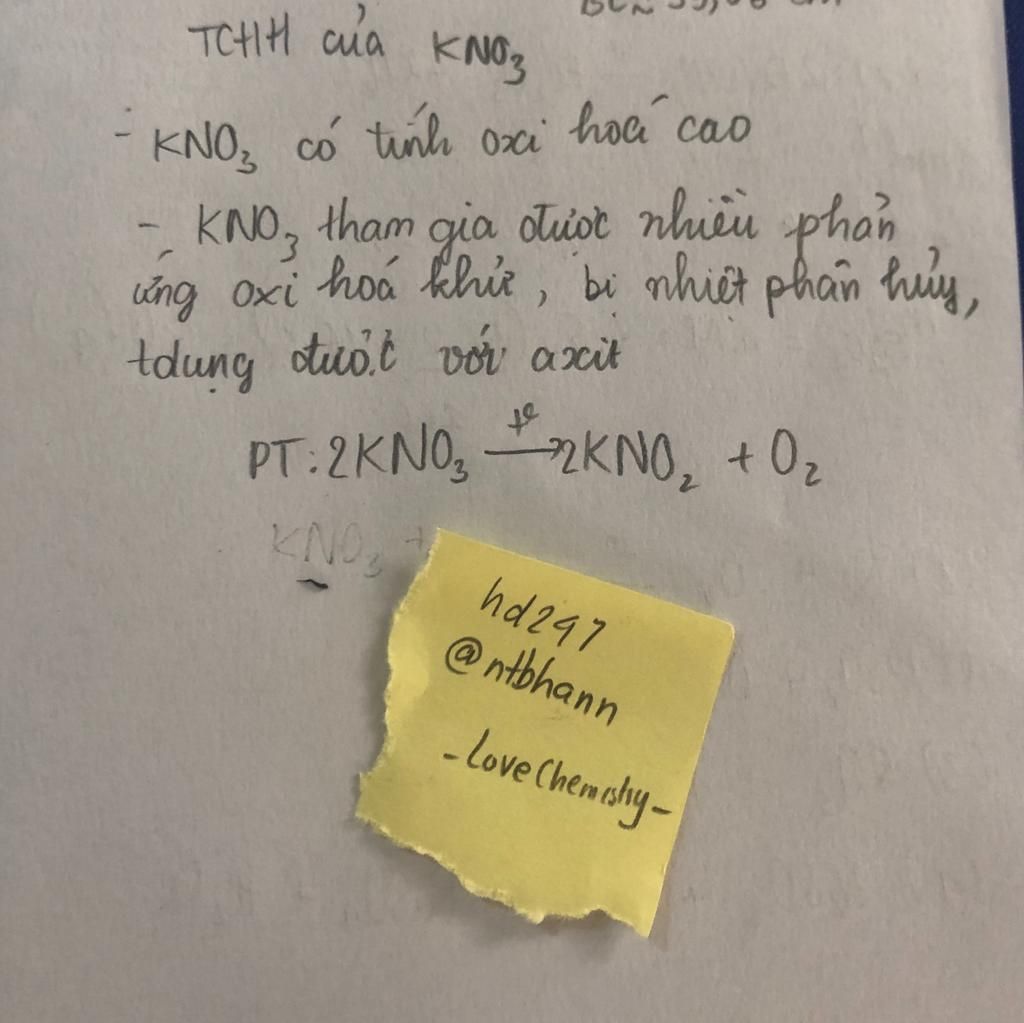 TCHH của KNO3
- KNO3 có tính oxi hoá cao
- KNO3 tham gia được nhiều phản
ứng oxi hoá khử, bị nhiệt phân hủy,
tdụng được với axit
PT: 2KNO3 →t° 2KNO2 + O2
KNO3 +
hd247
@ntbhann
-Love Chemistry-